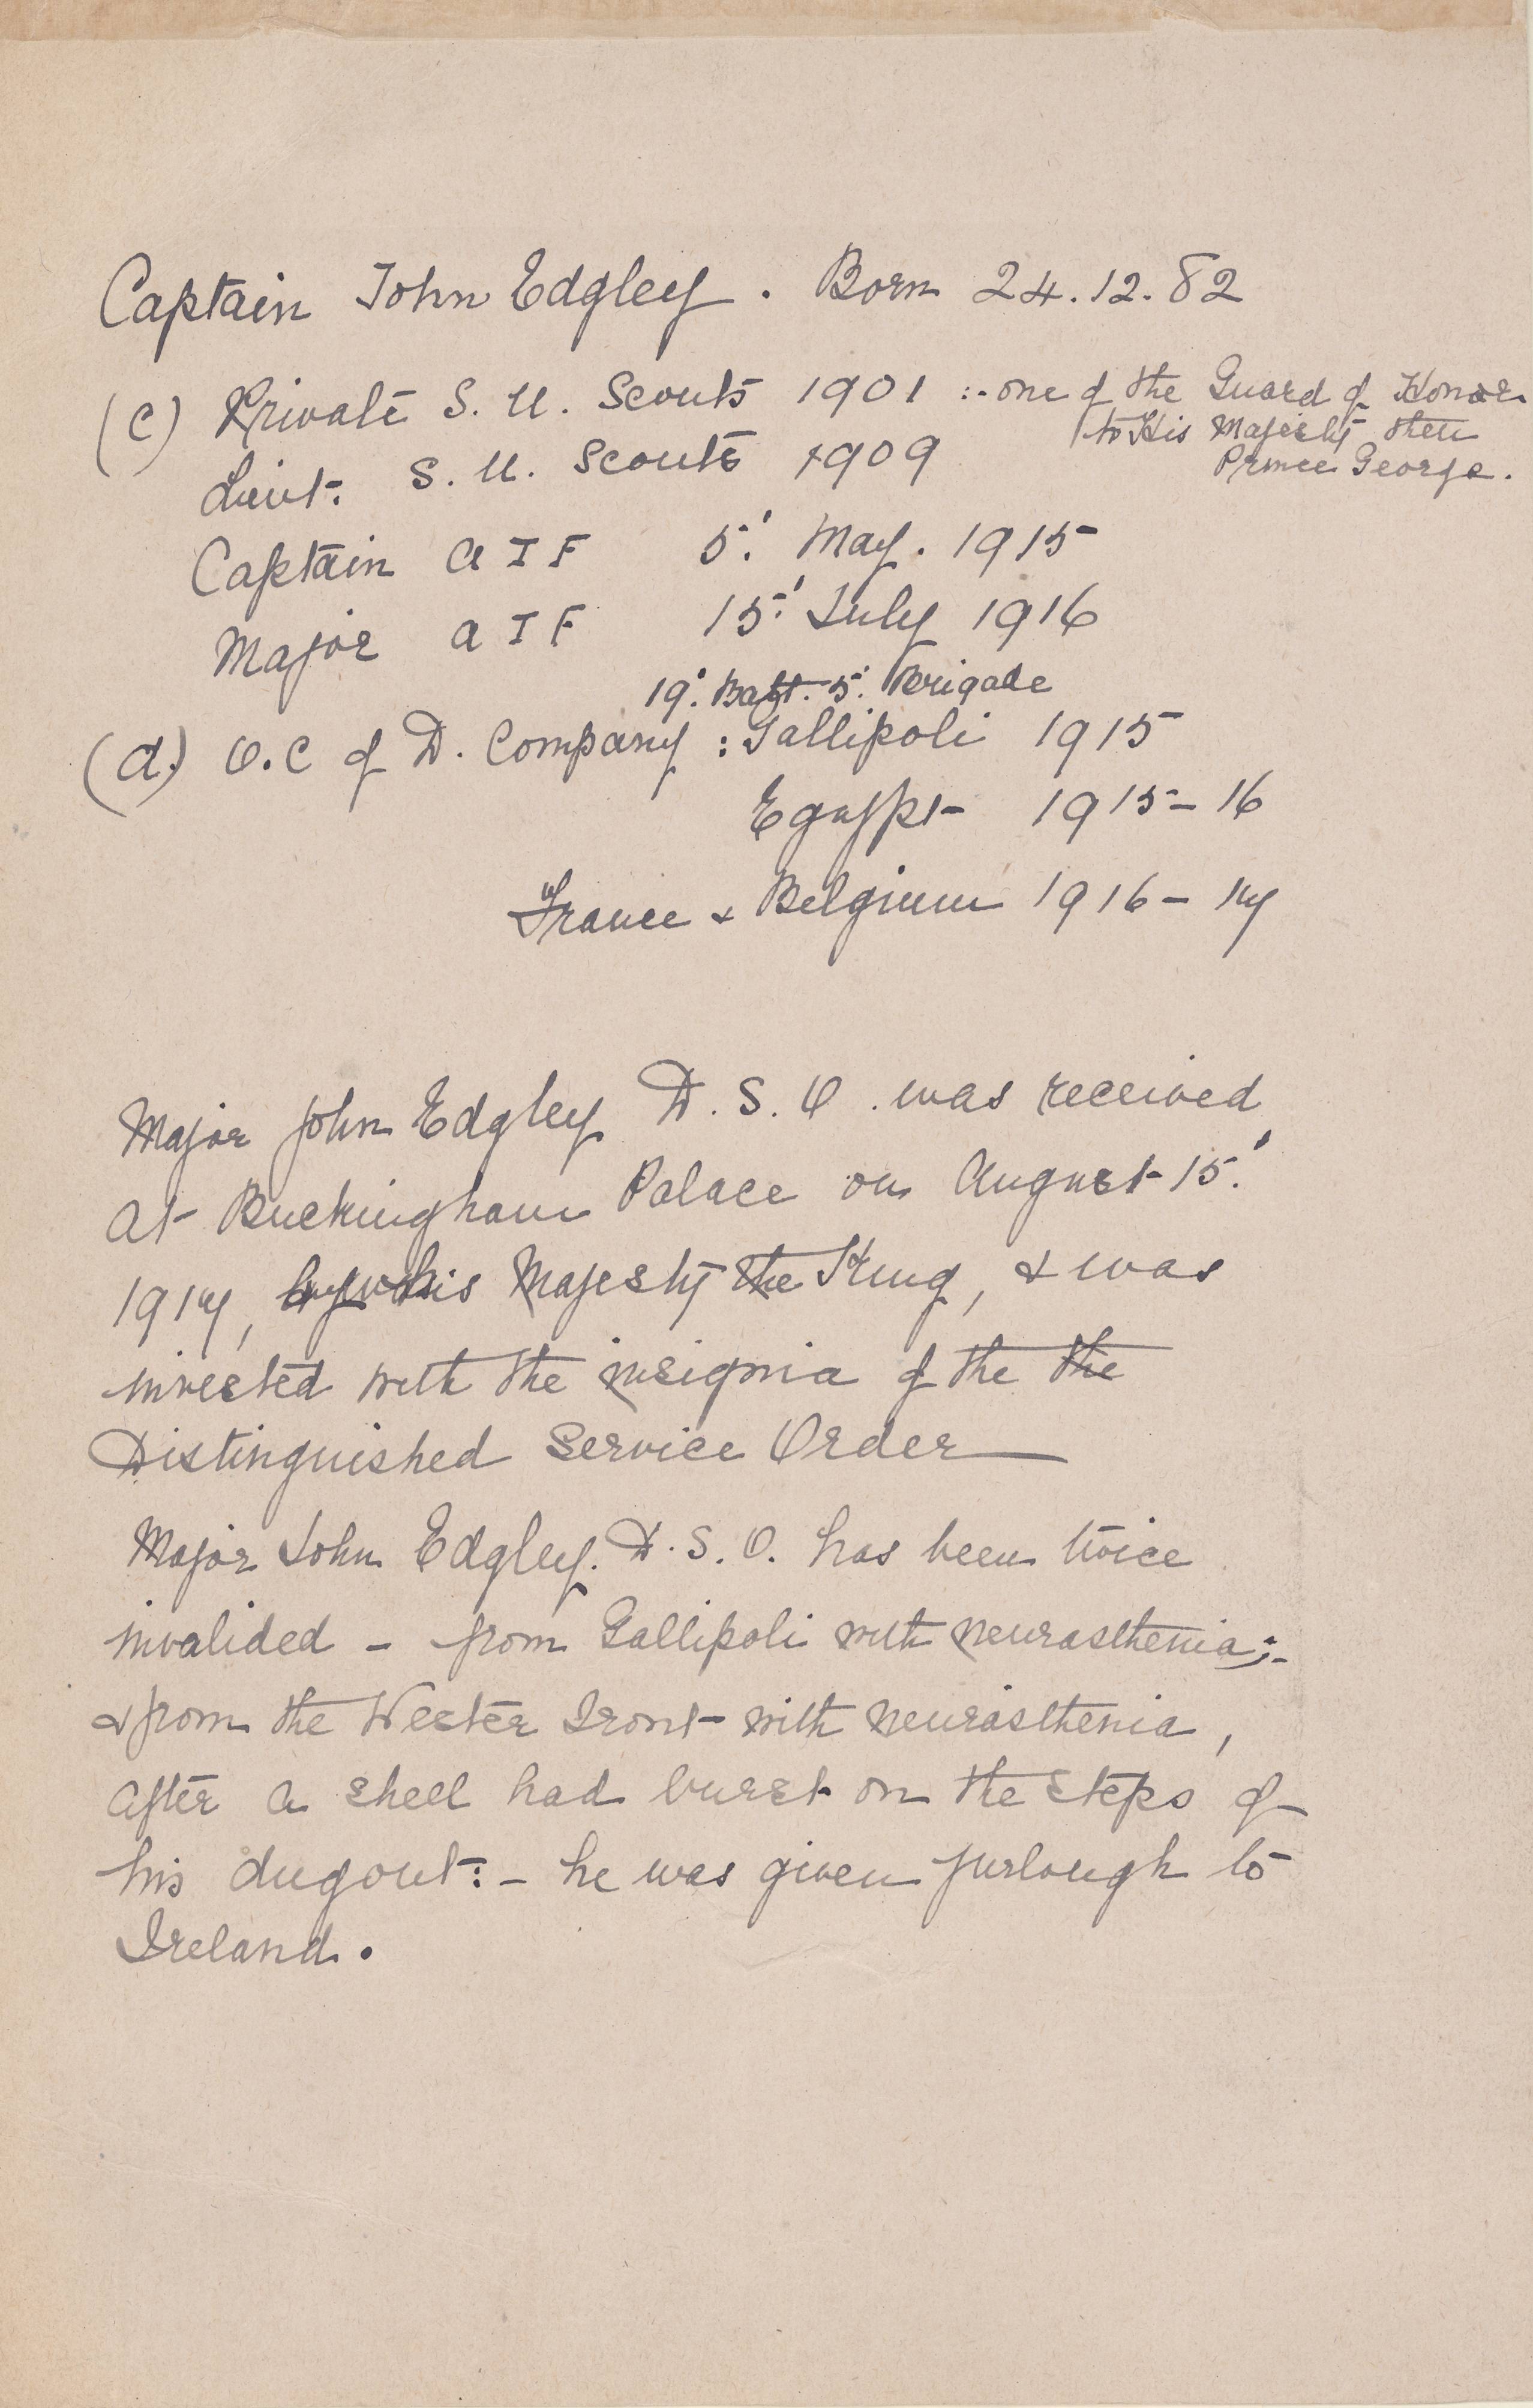 Captain John Edgley. Born 24.12.82
(c) Private S. U. Scouts 1901 :- one of the Guard of Honor
to His Majesty then
Prince George.
Lieut: S. U. Scouts 1909
Captain A I F 5' May. 1915
Major A I F 15' July 1916
19' Batt. 5' Brigade
(d) O.C of D. Company : Gallipoli 1915
Egypt 1915-16
France & Belgium 1916-17
Major John Edgley D.S.O. was received
at Buckingham Palace on August 15'
1917, by his Majesty the King, & was
invested with the insignia of the the
Distinguished Service Order
Major John Edgley. D.S.O. has been twice
invalided - from Gallipoli with neurasthenia;-
& from the Wester Front with neurasthenia,
after a shell had burst on the steps of
his dugout:- he was given furlough to
Ireland.